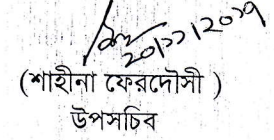 ২০/১১/২০১৭
(শাহীনা ফেরদৌসী )
উপসচিব